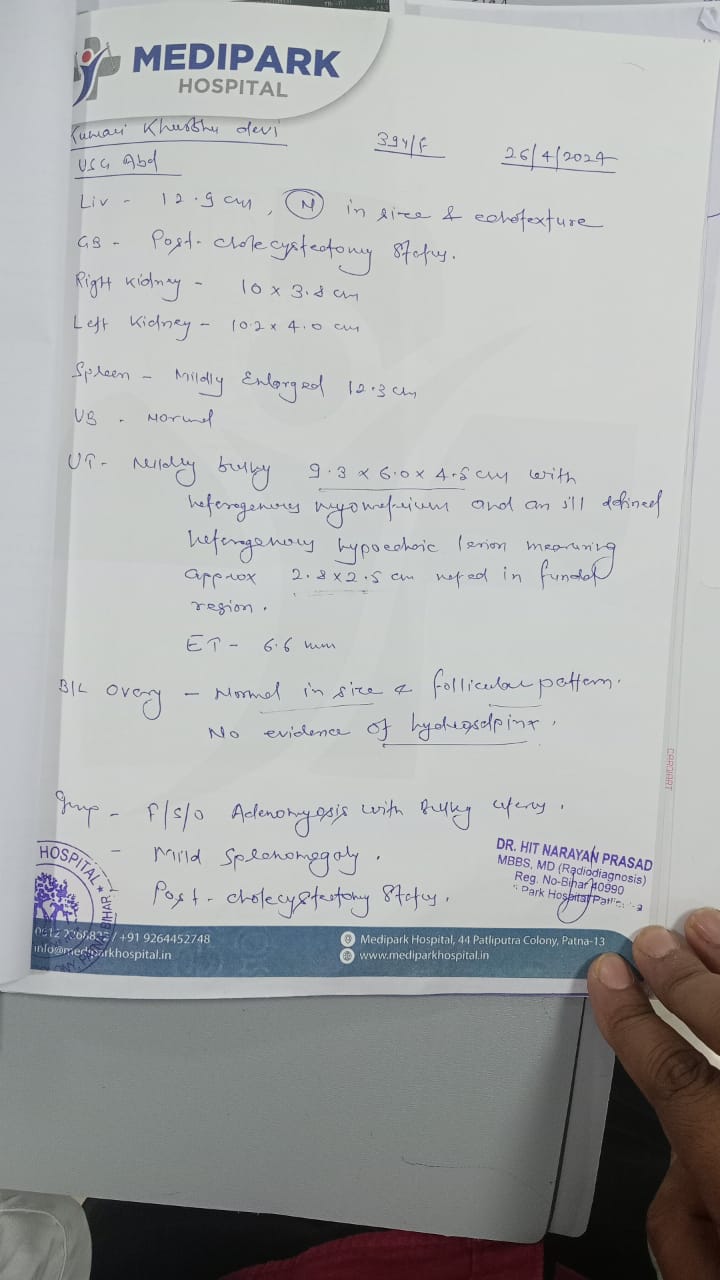 MEDIPARK
HOSPITAL
Kumari Khushbu devi
39Y/F
26/4/2024
USG Abd
Liv - 12.9 cm, (N) in size & echotexture
GB - Post-cholecystectomy Status.
Right Kidney - 10 x 3.8 cm
Left Kidney - 10.2 x 4.0 cm
Spleen - Mildly Enlarged 12.3 cm
UB - Normal
UT - Mildly bulky 9.3 x 6.0 x 4.5 cm with
heterogenous myometrium and an ill defined
heterogenous hypoechoic lesion measuring
approx 2.8 x 2.5 cm noted in fundal
region.
ET - 6.6 mm
B/L Ovary - Normal in size & follicular pattern.
No evidence of hydrosalpinx.
Imp - F/S/O Adenomyosis with Bulky uterus.
- Mild Splenomegaly.
Post-cholecystectomy Status.
DR. HIT NARAYAN PRASAD
MBBS, MD (Radiodiagnosis)
Reg. No-Bihar 40990
Park Hospital
HOSPITAL
BIHAR
+91 9264452748
info@mediparkhospital.in
Medipark Hospital, 44 Patliputra Colony, Patna-13
www.mediparkhospital.in